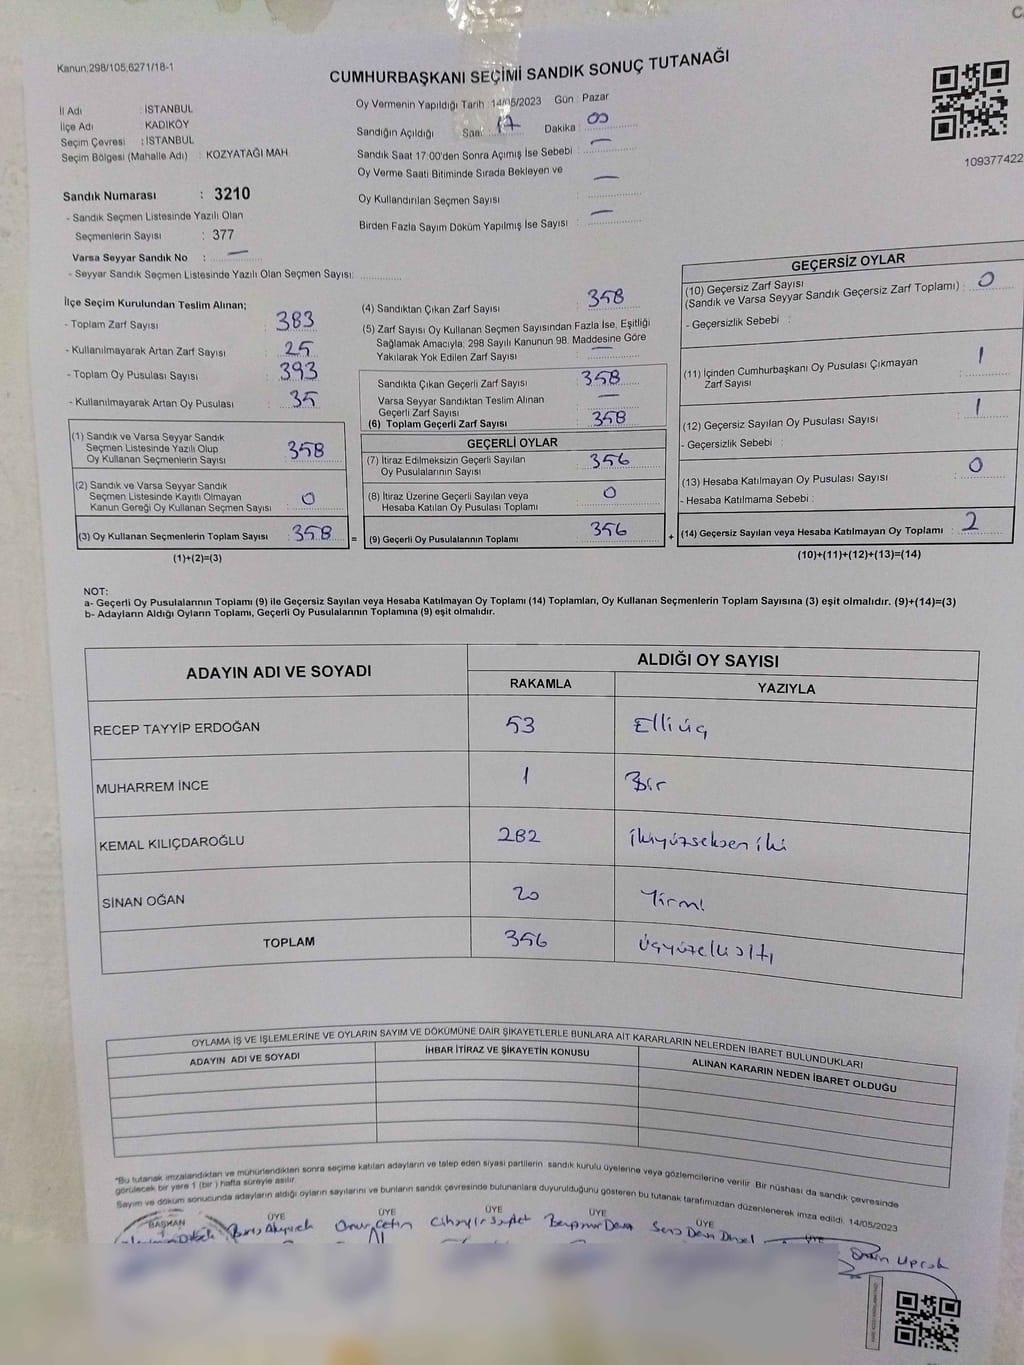 C
Kanun;298/105,6271/18-1
CUMHURBAŞKANI SEÇİMİ SANDIK SONUÇ TUTANAĞI
İl Adı : İSTANBUL
İlçe Adı : KADIKÖY
Seçim Çevresi : İSTANBUL
Seçim Bölgesi (Mahalle Adı) : KOZYATAĞI MAH.
Oy Vermenin Yapıldığı Tarih : 14/05/2023 Gün : Pazar
Sandığın Açıldığı Saat : 17 Dakika : 00
Sandık Saat 17:00'den Sonra Açımış İse Sebebi : —
Oy Verme Saati Bitiminde Sırada Bekleyen ve
Oy Kullandırılan Seçmen Sayısı : —
Birden Fazla Sayım Döküm Yapılmış İse Sayısı : —
109377422
Sandık Numarası : 3210
- Sandık Seçmen Listesinde Yazılı Olan
Seçmenlerin Sayısı : 377
Varsa Seyyar Sandık No : —
- Seyyar Sandık Seçmen Listesinde Yazılı Olan Seçmen Sayısı:
İlçe Seçim Kurulundan Teslim Alınan;
- Toplam Zarf Sayısı : 383
- Kullanılmayarak Artan Zarf Sayısı : 25
- Toplam Oy Pusulası Sayısı : 393
- Kullanılmayarak Artan Oy Pusulası : 35
(1) Sandık ve Varsa Seyyar Sandık
Seçmen Listesinde Yazılı Olup
Oy Kullanan Seçmenlerin Sayısı : 358
(2) Sandık ve Varsa Seyyar Sandık
Seçmen Listesinde Kayıtlı Olmayan
Kanun Gereği Oy Kullanan Seçmen Sayısı : 0
(3) Oy Kullanan Seçmenlerin Toplam Sayısı : 358 =
(1)+(2)=(3)
(4) Sandıktan Çıkan Zarf Sayısı : 358
(5) Zarf Sayısı Oy Kullanan Seçmen Sayısından Fazla İse, Eşitliği
Sağlamak Amacıyla; 298 Sayılı Kanunun 98. Maddesine Göre
Yakılarak Yok Edilen Zarf Sayısı : —
Sandıkta Çıkan Geçerli Zarf Sayısı : 358
Varsa Seyyar Sandıktan Teslim Alınan
Geçerli Zarf Sayısı : —
(6) Toplam Geçerli Zarf Sayısı : 358
GEÇERLİ OYLAR
(7) İtiraz Edilmeksizin Geçerli Sayılan
Oy Pusulalarının Sayısı : 356
(8) İtiraz Üzerine Geçerli Sayılan veya
Hesaba Katılan Oy Pusulası Toplamı : 0
(9) Geçerli Oy Pusulalarının Toplamı : 356 +
GEÇERSİZ OYLAR
(10) Geçersiz Zarf Sayısı
(Sandık ve Varsa Seyyar Sandık Geçersiz Zarf Toplamı) : 0
- Geçersizlik Sebebi :
(11) İçinden Cumhurbaşkanı Oy Pusulası Çıkmayan
Zarf Sayısı : 1
(12) Geçersiz Sayılan Oy Pusulası Sayısı : 1
- Geçersizlik Sebebi :
(13) Hesaba Katılmayan Oy Pusulası Sayısı : 0
- Hesaba Katılmama Sebebi :
(14) Geçersiz Sayılan veya Hesaba Katılmayan Oy Toplamı : 2
(10)+(11)+(12)+(13)=(14)
NOT:
a- Geçerli Oy Pusulalarının Toplamı (9) ile Geçersiz Sayılan veya Hesaba Katılmayan Oy Toplamı (14) Toplamları, Oy Kullanan Seçmenlerin Toplam Sayısına (3) eşit olmalıdır. (9)+(14)=(3)
b- Adayların Aldığı Oyların Toplamı, Geçerli Oy Pusulalarının Toplamına (9) eşit olmalıdır.
ADAYIN ADI VE SOYADI ALDIĞI OY SAYISI
RAKAMLA YAZIYLA
RECEP TAYYİP ERDOĞAN 53 Elliüç
MUHARREM İNCE 1 Bir
KEMAL KILIÇDAROĞLU 282 ikiyüzseksen iki
SİNAN OĞAN 20 Yirmi
TOPLAM 356 üçyüzelli altı
OYLAMA İŞ VE İŞLEMLERİNE VE OYLARIN SAYIM VE DÖKÜMÜNE DAİR ŞİKAYETLERLE BUNLARA AİT KARARLARIN NELERDEN İBARET BULUNDUKLARI
ADAYIN ADI VE SOYADI İHBAR İTİRAZ VE ŞİKAYETİN KONUSU ALINAN KARARIN NEDEN İBARET OLDUĞU
"Bu tutanak imzalandıktan ve mühürlendikten sonra seçime katılan adayların ve talep eden siyasi partilerin sandık kurulu üyelerine veya gözlemcilerine verilir. Bir nüshası da sandık çevresinde
görülecek bir yere 1 (bir) hafta süreyle asılır.
Sayım ve döküm sonucunda adayların aldığı oyların sayılarını ve bunların sandık çevresinde bulunanlara duyurulduğunu gösteren bu tutanak tarafımızdan düzenlenerek imza edildi. 14/05/2023
BAŞKAN ÜYE ÜYE ÜYE ÜYE ÜYE ÜYE
Onur Çetin